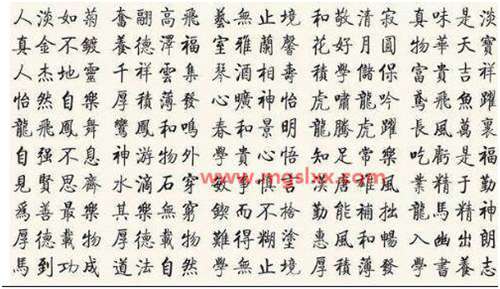 人淡如菊 奮翮高飛 藝無止境 和敬清寂 真味是淡
真金不鍍 養德澤福 室雅蘭馨 花好月圓 物華天寶
人杰地靈 千祥雲集 琴酒相壽 學儲保 富貴吉祥
怡然自樂 厚積薄發 曠神怡 虎嘯龍吟 鳶飛魚躍
龍飛鳳舞 鸞鳳和鳴 春和景明 龍騰虎躍 長風萬裏
自强不息 神游物外 學貴心悟 知足常樂 吃虧是福
見賢思齊 水滴石穿 敏事慎言 漢唐雄風 業精於勤
www.mgslxx.com
爲善最樂 其樂無窮 鍥而不捨 勤能補拙 龍馬精神
厚德載物 厚德載物 難得糊塗 惠風和暢 入幽出朗
馬到功成 道法自然 學無止境 厚積薄發 學書養志